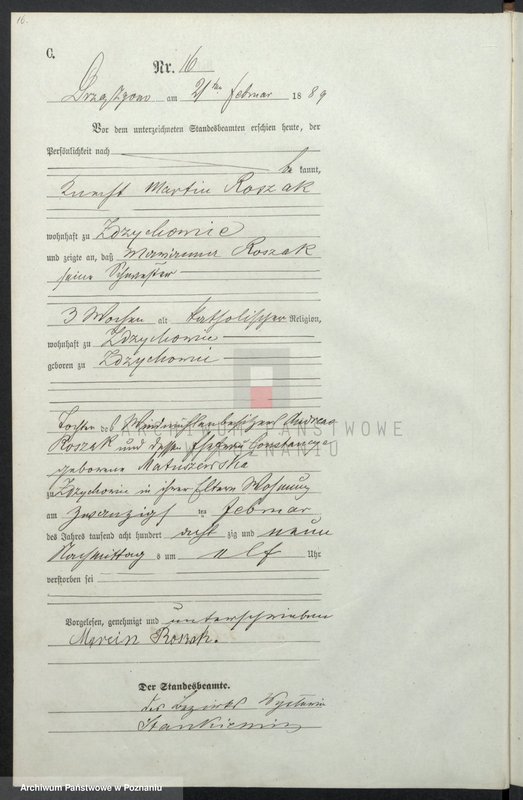 16.
C.
Nr. 16
am 21ten Februar 1889
Vor dem unterzeichneten Standesbeamten erschien heute, der
Persönlichkeit nach
be kannt,
Knecht Martin Roszak
wohnhaft zu Zdzychowie
und zeigte an, daß Marianna Roszak
seine Schwester
3 Wochen alt katholischer Religion,
wohnhaft zu Zdzychowie
geboren zu Zdzychowie
Tochter des Windmühlenbesitzers Andreas
Roszak und dessen Ehefrau Constancya
geborene Matuszewska
zu Zdzychowie in ihrer Eltern Wohnung
am zwanzigsten des Februar
des Jahres tausend acht hundert acht zig und neun
Nachmittag s um elf Uhr
verstorben sei
Vorgelesen, genehmigt und unterschrieben
Marcin Roszak.
Der Standesbeamte.
des Bezirks
Stankiewicz
ARCHIWUM PAŃSTWOWE
W POZNANIU
Archiwum Państwowe w Poznaniu